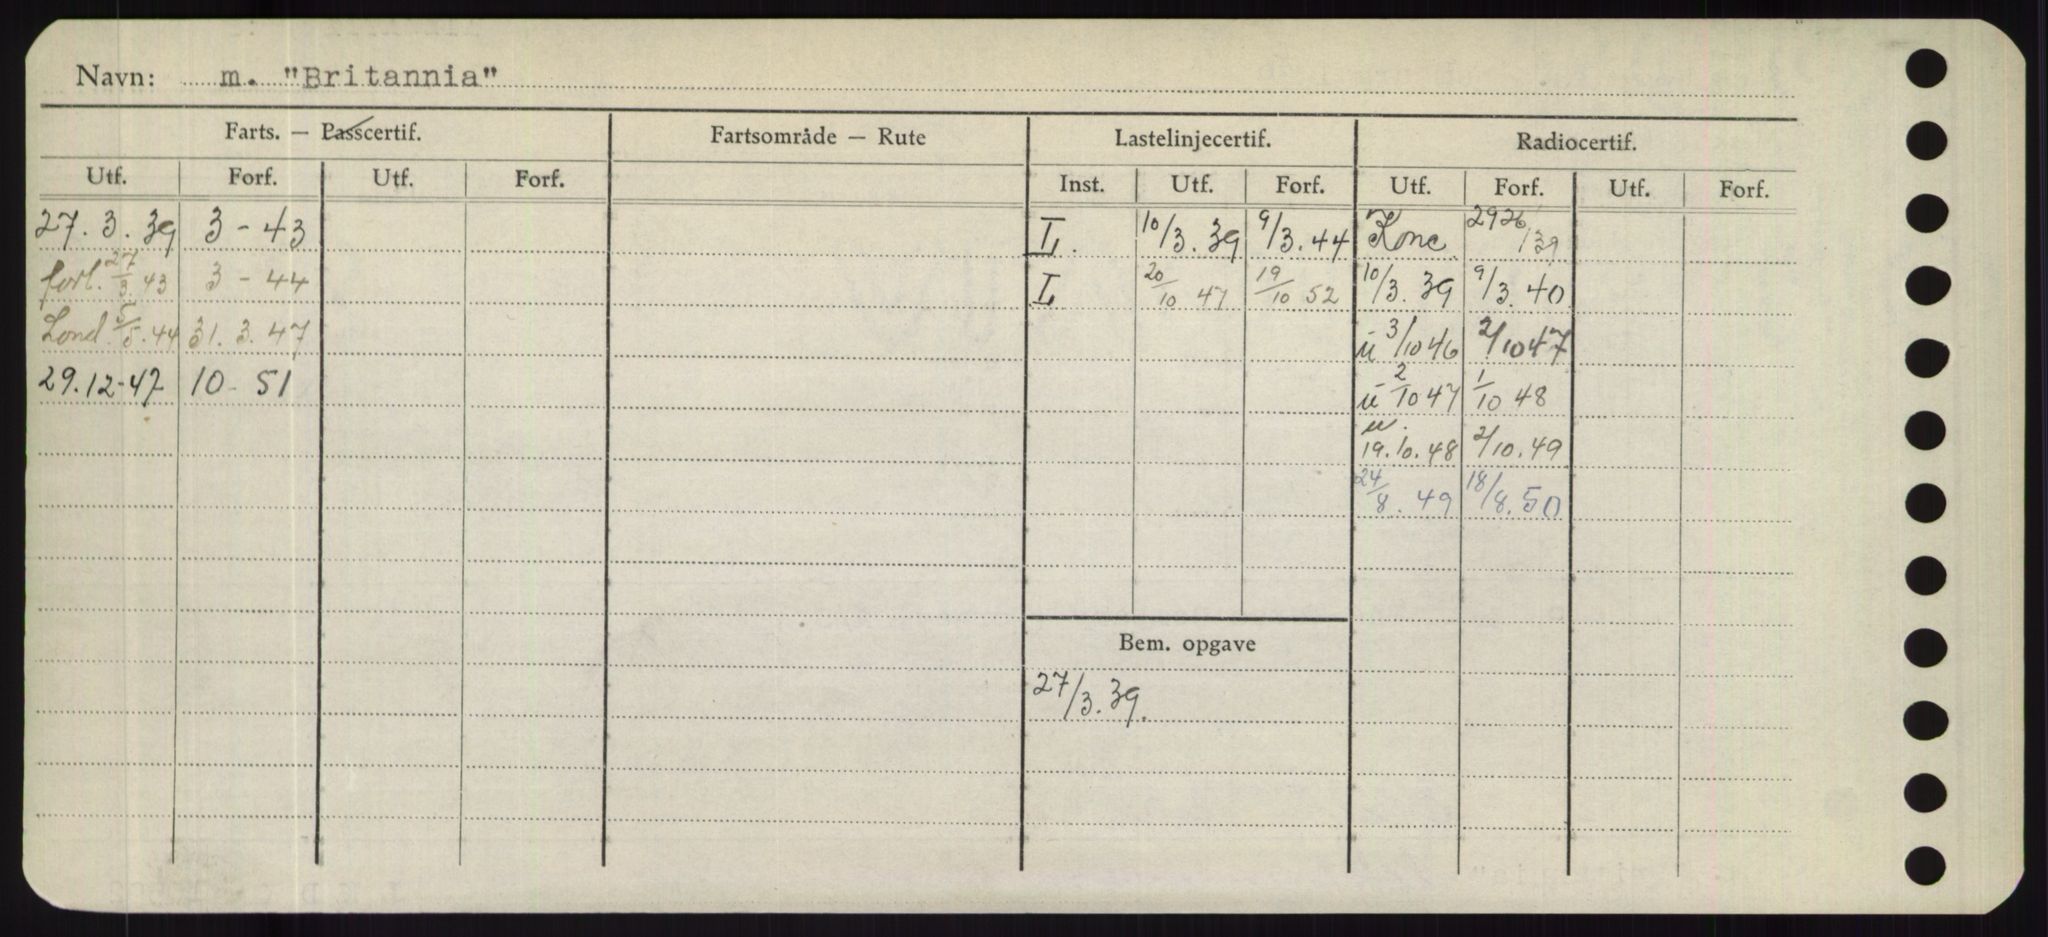 Navn: m. "Britannia"
Farts. — Passcertif. Fartsområde — Rute Lastelinjecertif. Radiocertif.
Utf. Forf. Utf. Forf. Inst. Utf. Forf. Utf. Forf. Utf. Forf.
27. 3. 39 3 - 43 L. 10/3. 39 9/3. 44 Konc. 2926/39
forl. 27/3. 43 3 - 44 L 20/10 47 19/10 52 10/3. 39 9/3. 40
Lond. 5/5. 44 31. 3. 47 u 3/10 46 2/10 47
29. 12 - 47 10 - 51 u 2/10 47 1/10 48
u. 19. 10. 48 2/10. 49
24/8. 49 18/8. 50
Bem. opgave
27/3. 39.